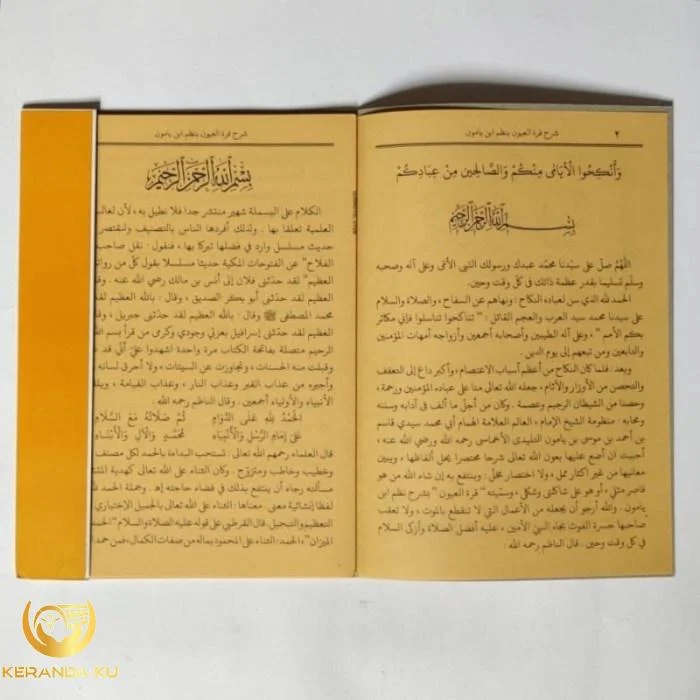 شرح قرة العيون بنظم ابن يامون
٢
وَأَنْكِحُوا الْأَيَامَى مِنْكُمْ وَالصَّالِحِينَ مِنْ عِبَادِكُمْ
بسم الله الرحمن الرحيم
اللهُمَّ صلّ على سيّدنا محمّد عبدك ورسولك النبى الأمّى وعلى آله وصحبه
وسلّم تسليما بقدر عظمة ذاتك فى كلّ وقت وحين.
الحمد لله الذي سن لعباده النكاح : ونهاهم عن السفاح ، والصلاة والسلام
على سيدنا محمد سيد العرب والعجم القائل : " تناكحوا تناسلوا فإني مكاثر
بكم الأمم " ، وعلى آله الطيبين وأصحابه أجمعين وأزواجه أمهات المؤمنين
والتابعين ومن تبعهم إلى يوم الدين .
وبعد : فلما كان النكاح من أعظم أسباب الاعتصام ، وأكبر داع إلى التعفف
والتحصن من الأوزار والآثام ، جعله الله تعالى منا على عباده المؤمنين ورحمة ،
وحصنا من الشيطان الرجيم وعصمة . وكان من أجل ما ألف فى آدابه وسننه
ومحابه : منظومة الشيخ الإمام ، العالم العلامة الهمام أبي محمد سيدي قاسم
بن أحمد بن موسى بن يامون التليدي الأخماسي رحمه الله ورضي الله عنه ،
أحببت ان أضع عليها بعون الله تعالى شرحا مختصرا يحل ألفاظها ، ويبين
معانيها من غير اكثار ممل ، ولا اختصار مخلّ: وينتفع به إن شاء الله من هو
قاصر مثلي ، أو هو على شاكلتي وشكلي ، وسمّيته " قرة العيون " بشرح نظم ابن
يامون . والله أرجو أن يجعله من الأعمال التي لا تنقطع بالموت ، ولا تعقب
صاحبها حسرة الفوت بجاه النبيّ الأمين ، عليه أفضل الصلاة وأزكى السلام
في كل وقت وحين . قال الناظم رحمه الله :
شرح قرة العيون بنظم ابن يامون
بسم الله الرحمن الرحيم
الكلام على البسملة شهير منتشر جدا فلا نطيل به ، لأن لغالب
العلمية تعلقا بها . ولذلك أفردها الناس بالتصنيف ولنقتصر
حديث مسلسل وارد في فضلها تبركا بها ، فنقول : نقل صاحب
الفلاح " عن الفتوحات المكية حديثا مسلسلا بقول كلّ من رواته
العظيم" لقد حدّثنى فلان إلى أنس بن مالك رضي الله عنه . وقال
العظيم لقد حدّثنى أبو بكر الصديق ، وقال : بالله العظيم لقد
محمد المصطفى ﷺ وقال : بالله العظيم لقد حدثني جبريل ، وقال
لقد حدّثنى إسرافيل بعزتي وجودي وكرمى من قرأ بسم الله
الرحيم متصلة بفاتحة الكتاب مرة واحدة اشهدوا علىّ أنى قد
وقبلت منه الحسنات ، وتجاوزت عن السيئات ، ولا أحرق لسانه
وأجيره من عذاب القبر وعذاب النار ، وعذاب القيامة ، ويلقاني
الأنبياء والأولياء أجمعين . وقال الناظم رحمه الله :
الْحَمْدُ لِلَّهِ عَلَى الدَّوَامِ ثُمَّ صَلَاتُهُ مَعَ السَّلَامِ
عَلَى إِمَامِ الرُّسْلِ وَالْأَنْبِيَاءِ مُحَمَّدٍ وَالْآلِ وَالْأَبْنَاءِ
قال العلماء رحمهم الله تعالى : تستحب البداءة بالحمد لكل مصنف
وخطيب وخاطب ومتزوّج . وكان الثناء على الله تعالى كهدية
مسألته رجاء أن ينتفع بذلك في قضاء حاجته إه . وجملة الحمد
لفظا إنشائية معنى ، معناها : الثناء على الله تعالى بالجميل الإختياري
التعظيم والتبجيل، قال القرطبي على قوله عليه الصلاة والسلام "الحمد
الميزان "، الحمد : الثناء على المحمود بماله من صفات الكمال ، فمن
KERANDA KU